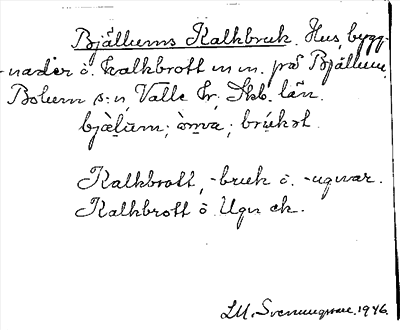 Bjällums Kalkbruk. Hus, bygg-
nader ö. kalkbrott m.m. på Bjällum,
Bolum s:n, Valle hr, Skb. län.
bjälum; ömva; brukst.
Kalkbrott, -bruk ö. -ugnar.
Kalkbrott ö Ugn ek.
LM. Svenungsson. 1946.